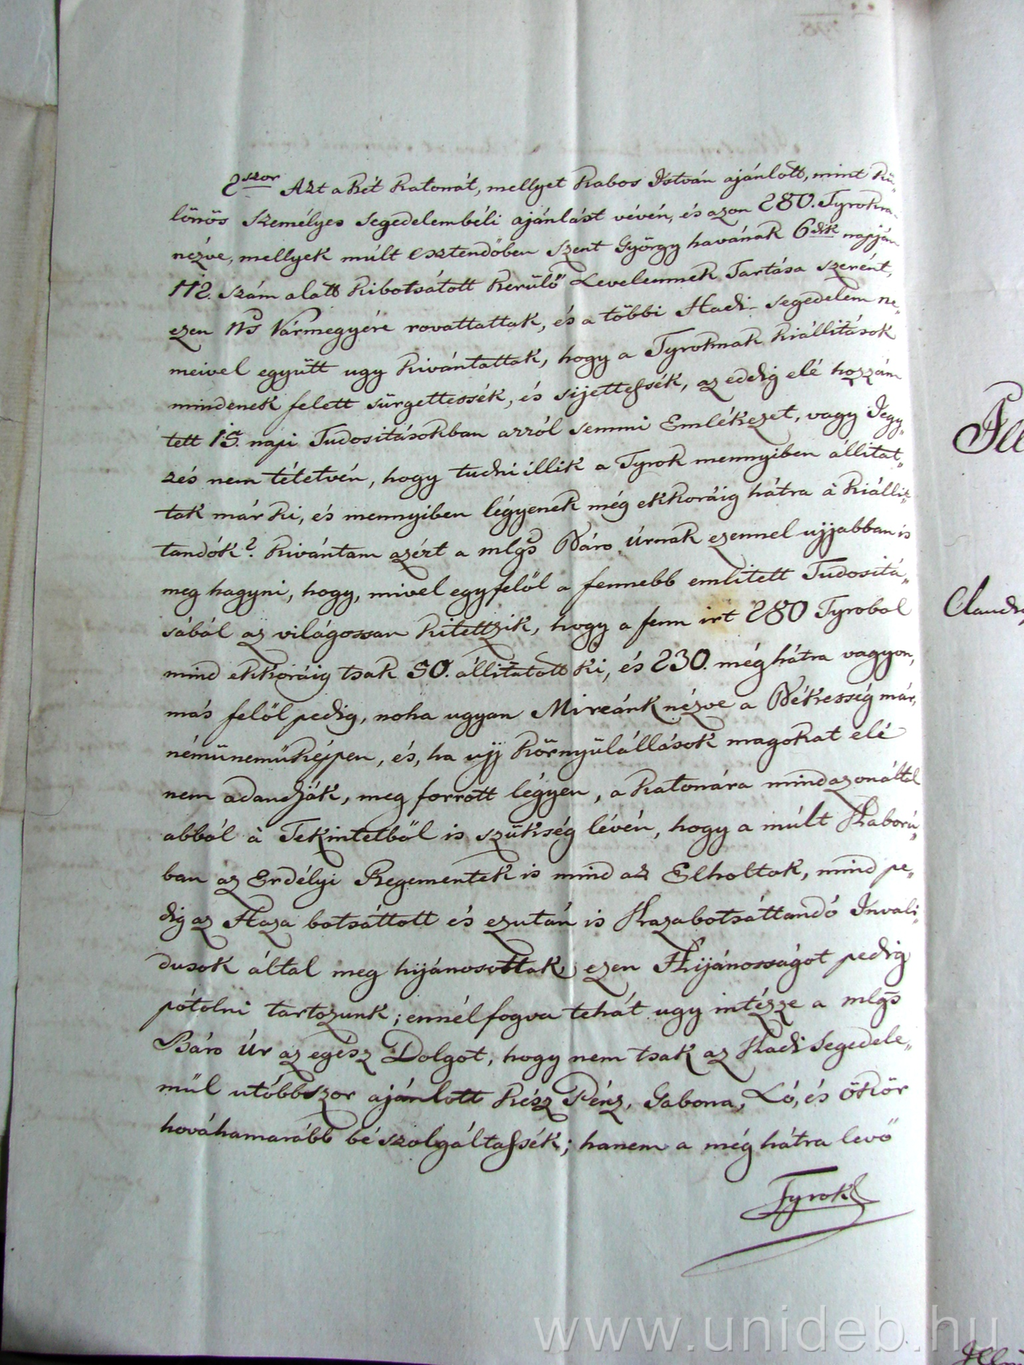 2szor Azt a Két Katonát, mellyet Kabos István ajánlott, mint Kü„
lönös személyes segedelembéli ajánlást vévén, és azon 280. Tyrokra
nézve, mellyek múlt esztendőben Szent György havának 6dik napján
112. szám alatt Kibotsátott Kerülő Levelemnek Tartása szerént,
ezen Ns Vármegyére rovattattak, és a többi Hadi segedelem ne„
meivel együtt ugy Kivántattak, hogy a Tyroknak Kiállitások
mindenek felett sürgettessék, és sijettessék, az eddig elé hozzám
tett 15. napi Tudositásokban arról semmi Emlékezet, vagy Jegy„
zés nem tétetvén, hogy tudniillik a Tyrok mennyiben állitat„
tak már Ki, és mennyiben légyenek még ekkoráig hátra à Kiállit„
tandók? Kivántam azért a mlgs Báro Úrnak ezennel ujjabban is
meg hagyni, hogy, mivel egyfelöl a fennebb emlitett Tudositá„
sából az világossan Kitettzik, hogy a fenn irt 280 Tyrobol
mind ekkoráig tsak 50. állitatott Ki, és 230. még hátra vagyon,
más felöl pedig, noha ugyan Mireánk nézve a Békesség már,
némünemüképen, és, ha ujj Környülállások magokat elé
nem adandják, meg forrott légyen, a Katonára mindazonáltal
abból à Tekintetből is szükség lévén, hogy a múlt Háború„
ban az Erdélyi Regementek is mind az Elholtak, mind pe„
dig az Haza botsáttott és ezután is Hazabotsáttandó Invali„
dusok által meg hijánosottak, ezen Hijánosságot pedig
pótolni tartozunk; ennél fogva tehát ugy intézze a mlgs
Báro Úr az egész Dolgot, hogy nem tsak az Hadi Segedele„
mül utóbbszor ajánlott Kész Pénz, Gabona, Ló, és ökör
hováhamarább bé szolgáltassék; hanem a még hátra levő
Tyrok
Claudi
www.unideb.hu